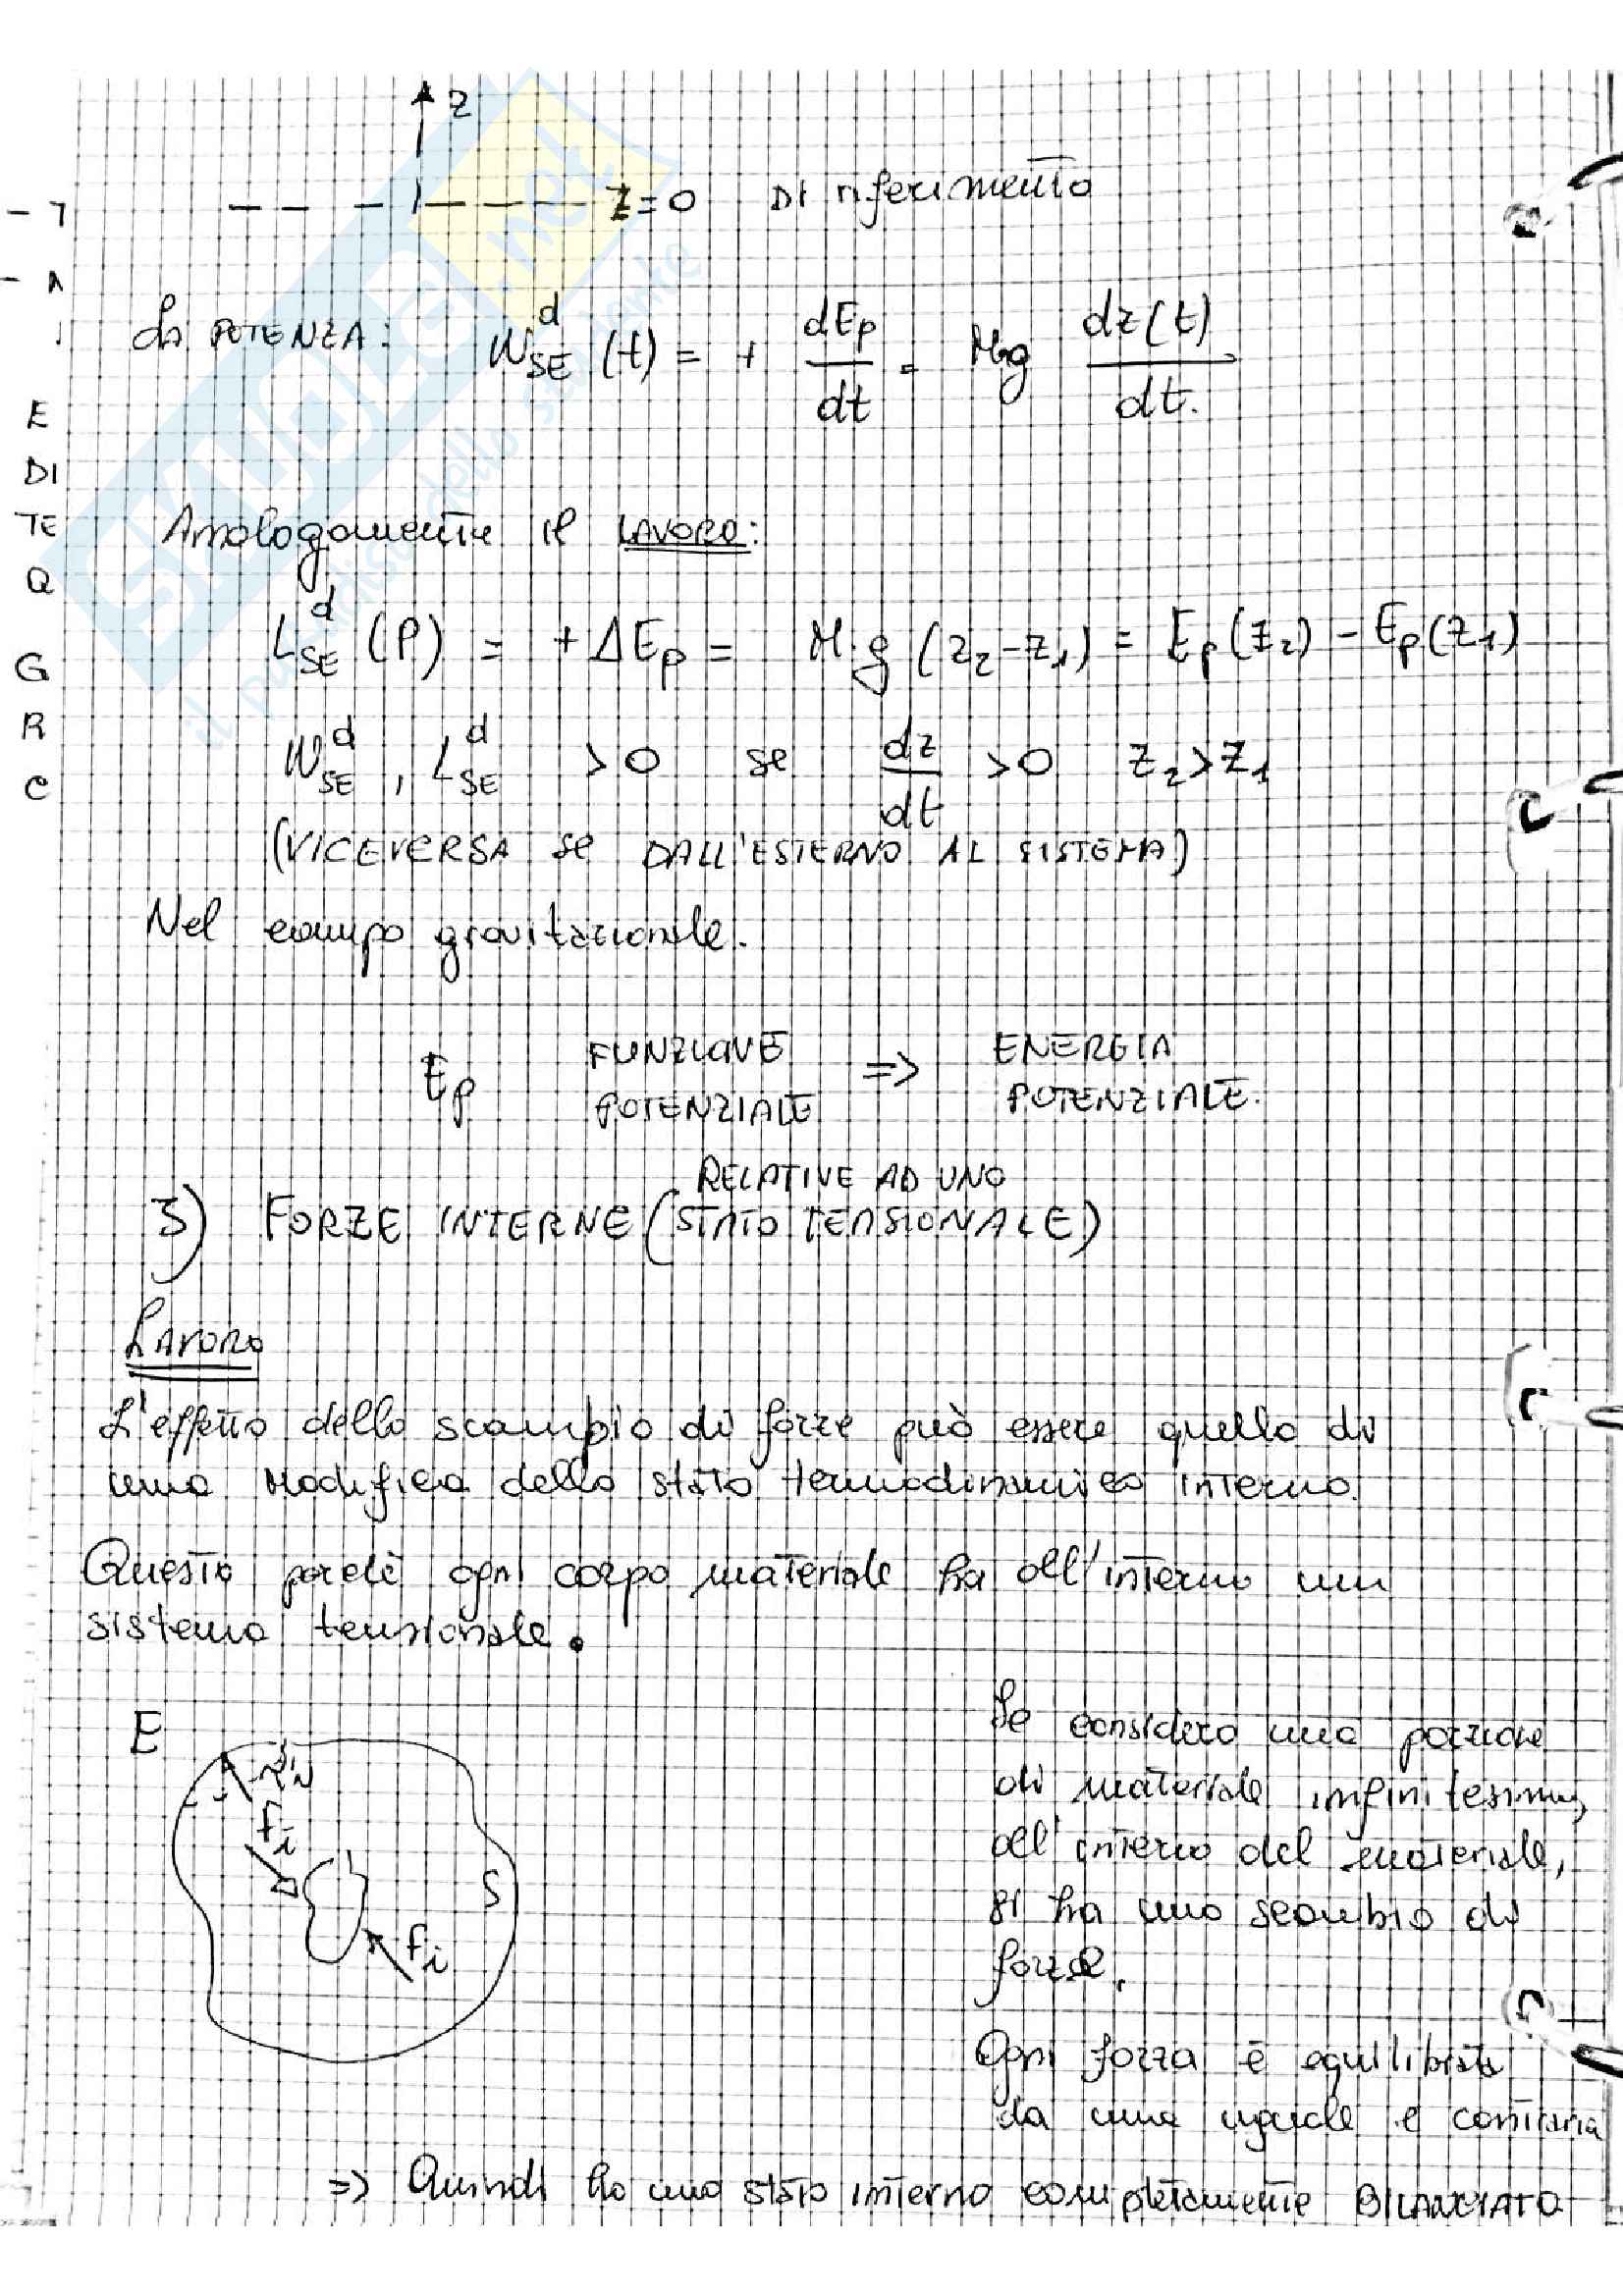 z
z=0 DI riferimento
La POTENZA: W^d_SE (t) = + dEp/dt = Mg dz(t)/dt.
Analogamente il LAVORO:
L^d_SE (P) = +ΔEp = M·g (z2-z1) = Ep(z2) - Ep(z1)
W^d_SE , L^d_SE >0 se dz/dt >0 z2>z1
(VICEVERSA se DALL'ESTERNO AL SISTEMA)
Nel campo gravitazionale.
Ep FUNZIONE POTENZIALE => ENERGIA POTENZIALE.
RELATIVE AD UNO
3) FORZE INTERNE (STATO TENSIONALE)
LAVORO
L'effetto dello scambio di forze può essere quello di
una modifica dello stato termodinamico interno.
Questo perché ogni corpo materiale ha all'interno un
sistema tensionale.
E
fi
S
fi
Se considero una porzione
di materiale infinitesima,
all'interno del materiale,
si ha uno scambio di
forze.
Ogni forza è equilibrata
da una uguale e contraria
=> Quindi ho uno stato interno completamente BILANCIATO
E
DI
TE
Q
G
R
C
SKUOLA.net
il paradiso dello studente